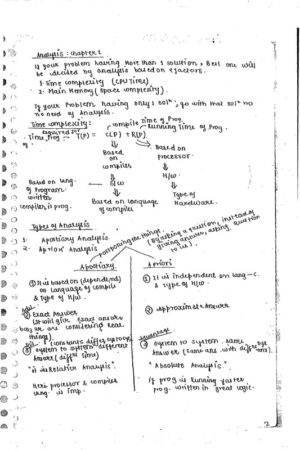 Analysis : chapter 1
If your problem having More than 1 solution, Best one will
be decided by analysis based on 2 factors.
1. Time complexity (CPU Time)
2. Main Memory (Space complexity).
If your Problem having only 1 solⁿ, go with that solⁿ no
no need of Analysis.
Time complexity:
compile Time of Prog.
required for
Running Time of Prog.
Time, Prog → T(P) = C(P) + R(P)
Based on compiler
Based on processor
Based on lang.
of Program
written
compiler is prog.
S/w
H/w
Based on language
of compiler
Type of
Hardware.
Types of Analysis
1. Apostiary Analysis
2. Apriori Analysis
Postponing the things.
(By asking a question, instead of
giving answer, asking question
to us)
Apostiary
Apriori
① It is based on (dependent)
on language of compiler
& type of H/w.
① It is independent on lang. of C.
& type of H/w.
② Exact Answer
(It will give exact answer
bcz we are considering real
things)
② Approximate Answer
③ System to System different
Answer (diff time)
③ System to System same
Answer
"Relative Analysis"
"Absolute Analysis"
Here processor & compiler
lang. is imp.
If prog. is running faster
prog. written in great logic.
2